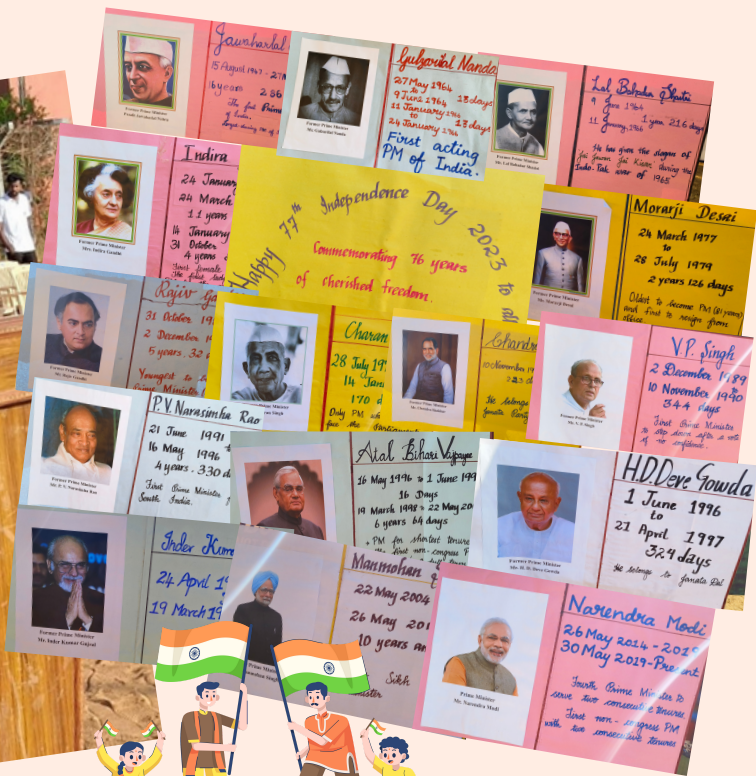 Jawaharlal
15 August 1947 - 27
16 years 286
The first Prime
of India,
Former Prime Minister
Gulzarilal Nanda
27 May 1964
to
9 June 1964 13 days
11 January 1966
to
24 January 1966 13 days
First acting
PM of India.
Former Prime Minister
Mr. Gulzarilal Nanda
Lal Bahadur Shastri
9 June 1964
11 January, 1966 1 year 216 days
He has given the slogan of
Jai Jawan Jai Kisan during the
Indo-Pak war of 1965
Former Prime Minister
Mr. Lal Bahadur Shastri
Indira
24 January
24 March
11 years
14 January
31 October
4 years
First female
The first lady
Former Prime Minister
Mrs. Indira Gandhi
Happy 77th Independence Day 2023 to all
Commemorating 76 years
of cherished freedom.
Morarji Desai
24 March 1977
to
28 July 1979
2 years 126 days
Oldest to become PM (81 years)
and first to resign from
office.
Former Prime Minister
Mr. Morarji Desai
Rajiv Ga
31 October 19
2 December 1
5 years. 32 d
Youngest to
Prime Minister
Former Prime Minister
Mr. Rajiv Gandhi
Charan
28 July 197
14 Janu
170 d
Only PM wh
face the Parliament
Minister
Charan Singh
Chandra
10 November 19
223 d
He belongs
Janata Party
Former Prime Minister
V.P. Singh
2 December 1989
10 November 1990
344 days
First Prime Minister
to step down after a vote
of no confidence.
Former Prime Minister
Mr. V. P. Singh
P.V. Narasimha Rao
21 June 1991
to
16 May 1996
4 years. 330 d
First Prime Minister
South India.
Former Prime Minister
Mr. P. V. Narasimha Rao
Atal Bihari Vajpayee
16 May 1996 to 1 June 199
16 Days
19 March 1998 - 22 May 200
6 years 64 days
• PM for shortest tenure
the first non-congress P
H.D. Deve Gowda
1 June 1996
to
21 April 1997
324 days
He belongs to Janata Dal
Former Prime Minister
Mr. H. D. Deve Gowda
Inder Kum
24 April 19
19 March 19
Former Prime Minister
Mr. Inder Kumar Gujral
Manmohan
22 May 2004
26 May 201
10 years an
Sikh
Minister
Prime Minister
Manmohan Singh
Narendra Modi
26 May 2014 - 2019
30 May 2019 - Present
Fourth Prime Minister to
serve two consecutive tenures
First non-congress PM
with two consecutive tenures
Prime Minister
Mr. Narendra Modi